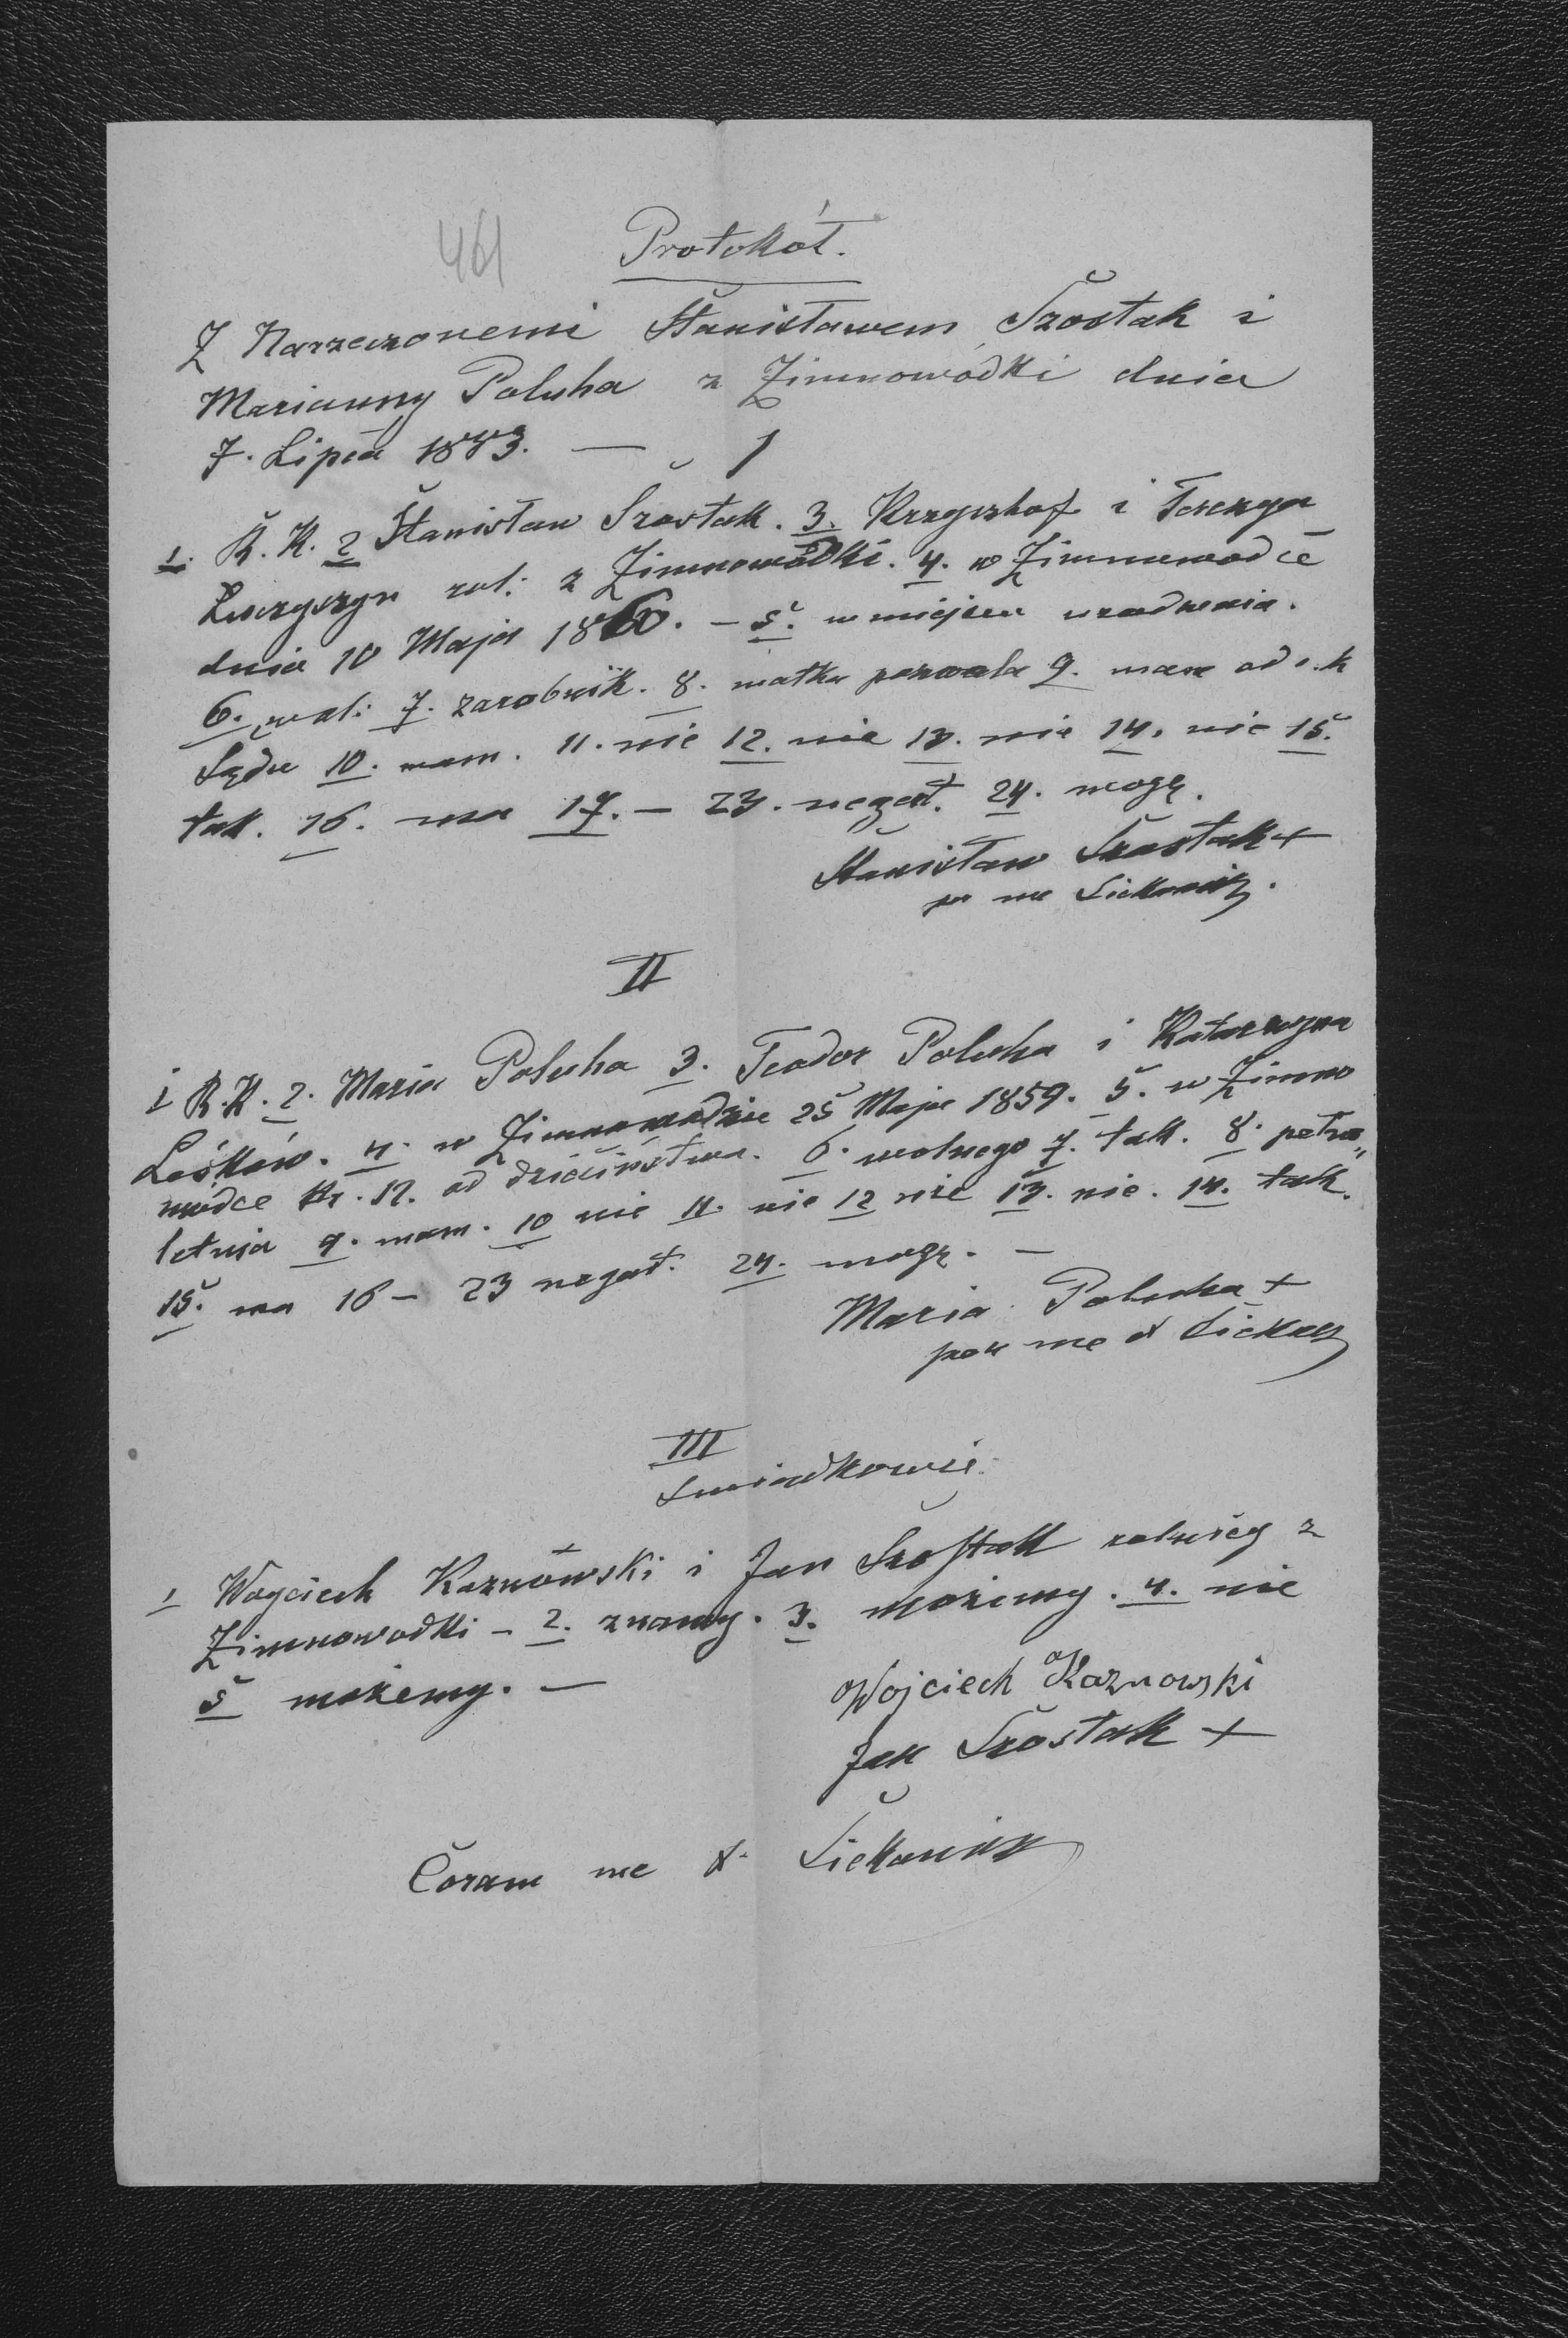 461
Protokół.
Z Narzeczonemi Stanisławem Szostak i
Marianny Poluha z Zimnowódki dnia
7. Lipca 1883. —
I
1. R. K. 2 Stanisław Szostak. 3. Krzysztof i
rol: z Zimnowódki. 4. w Zimnowodce
dnia 10 Maja 1860. — 5. w miejscu urodzenia.
6. wol: 7. zarobnik. 8. matka pozwala 9. mam od c. k
Sądu 10. mam. 11. nie 12. nie 13. nie 14. nie 15.
tak. 16. ma 17. — 23. negat. 24. mogę.
Stanisław Szostak +
II
1 R. K. 2. Maria Poluha 3. Teodor Poluha i Katarzyna
Leśków. 4. w Zimnowodzie 25 Maja 1859. 5. w Zimno
wódce Nr. 12. od dzieciństwa. 6. wolnego 7. tak. 8. pełno„
letnia 9. mam. 10 nie 11. nie 12 nie 13. nie. 14. tak.
15. ma 16 — 23 negat. 24. mogę. —
Maria Poluha +
III
Swiadkowie.
1 Wojciech Kaznowski i Jan Szostak rolnicy z
Zimnowodki — 2. znamy. 3. możemy. 4. nie
5 możemy. —
Wojciech Kaznowski
Jan Szostak +
Coram me